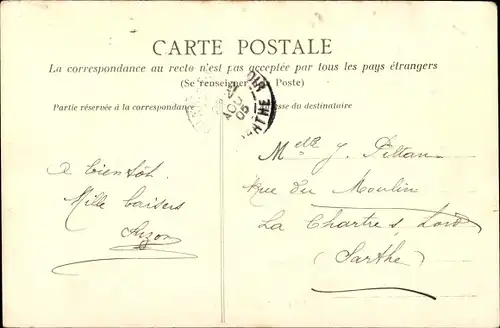 CARTE POSTALE
La correspondance au recto n'est pas acceptée par tous les pays étrangers
(Se renseigner Poste)
Partie réservée à la correspondance
esse du destinataire
OIR
AOU
05
THE
a bientôt
Mille baisers
Suzon
Melle J. Pittau
Rue du Moulin
La Chartre s. Loir
(Sarthe)